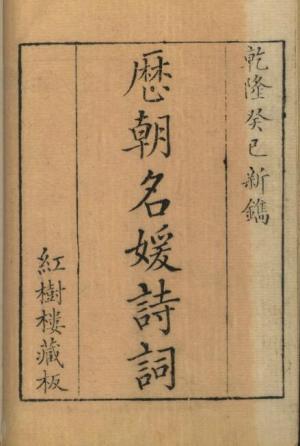 乾隆癸巳新鐫
歷朝名媛詩詞
紅樹樓藏板